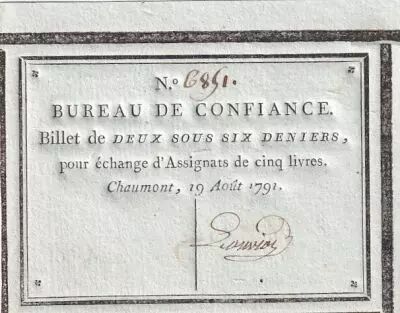 N.o 6851.
BUREAU DE CONFIANCE.
Billet de DEUX SOUS SIX DENIERS,
pour échange d'Assignats de cinq livres.
Chaumont, 19 Août 1791.